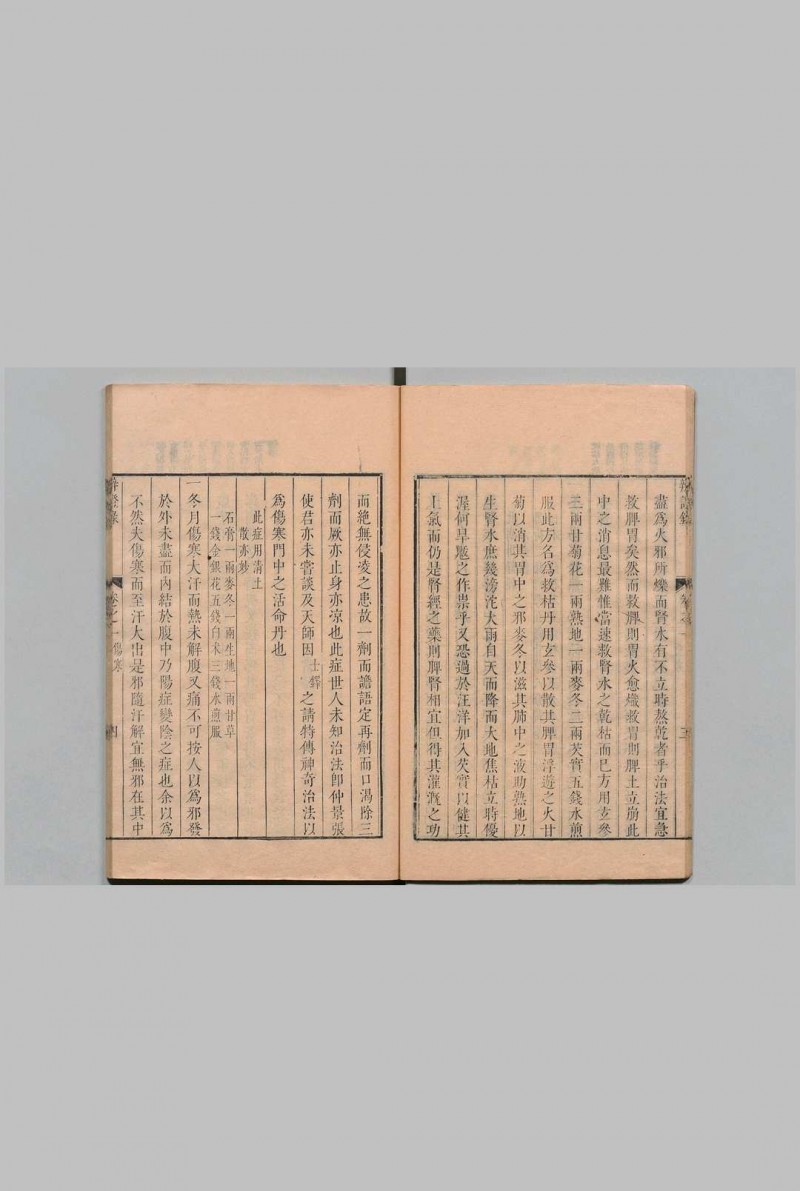 盡爲火邪所爍而腎水有不立時熬乾者乎治法宜急
救脾胃矣然而救脾則胃火愈熾救胃則脾土立崩此
中之消息最難惟當速救腎水之乾枯而已方用玄參
三兩甘菊花一兩熟地一兩麥冬二兩芡實五錢水煎
服此方名爲救枯丹用玄參以散其脾胃浮遊之火甘
菊以消其胃中之邪麥冬以滋其肺中之液助熟地以
生腎水庶幾滂沱大雨自天而降而大地焦枯立時優
渥何旱魃之作祟乎又恐過於汪洋加入芡實以健其
土氣而仍是腎經之藥則脾腎相宜但得其灌溉之功
而絕無侵凌之患故一劑而譫語定再劑而口渴除三
劑而厥亦止身亦凉也此症世人未知治法卽仲景張
使君亦未嘗談及天師因士鐸之請特傳神奇治法以
爲傷寒門中之活命丹也
此症用清土
散亦妙
石膏一兩麥冬一兩生地一兩甘草
一錢金銀花五錢白术三錢水煎服
一冬月傷寒大汗而熱未解腹又痛不可按人以爲邪發
於外未盡而內結於腹中乃陽症變陰之症也余以爲
不然夫傷寒而至汗大出是邪隨汗解宜無邪在其中
卷之一傷寒
四